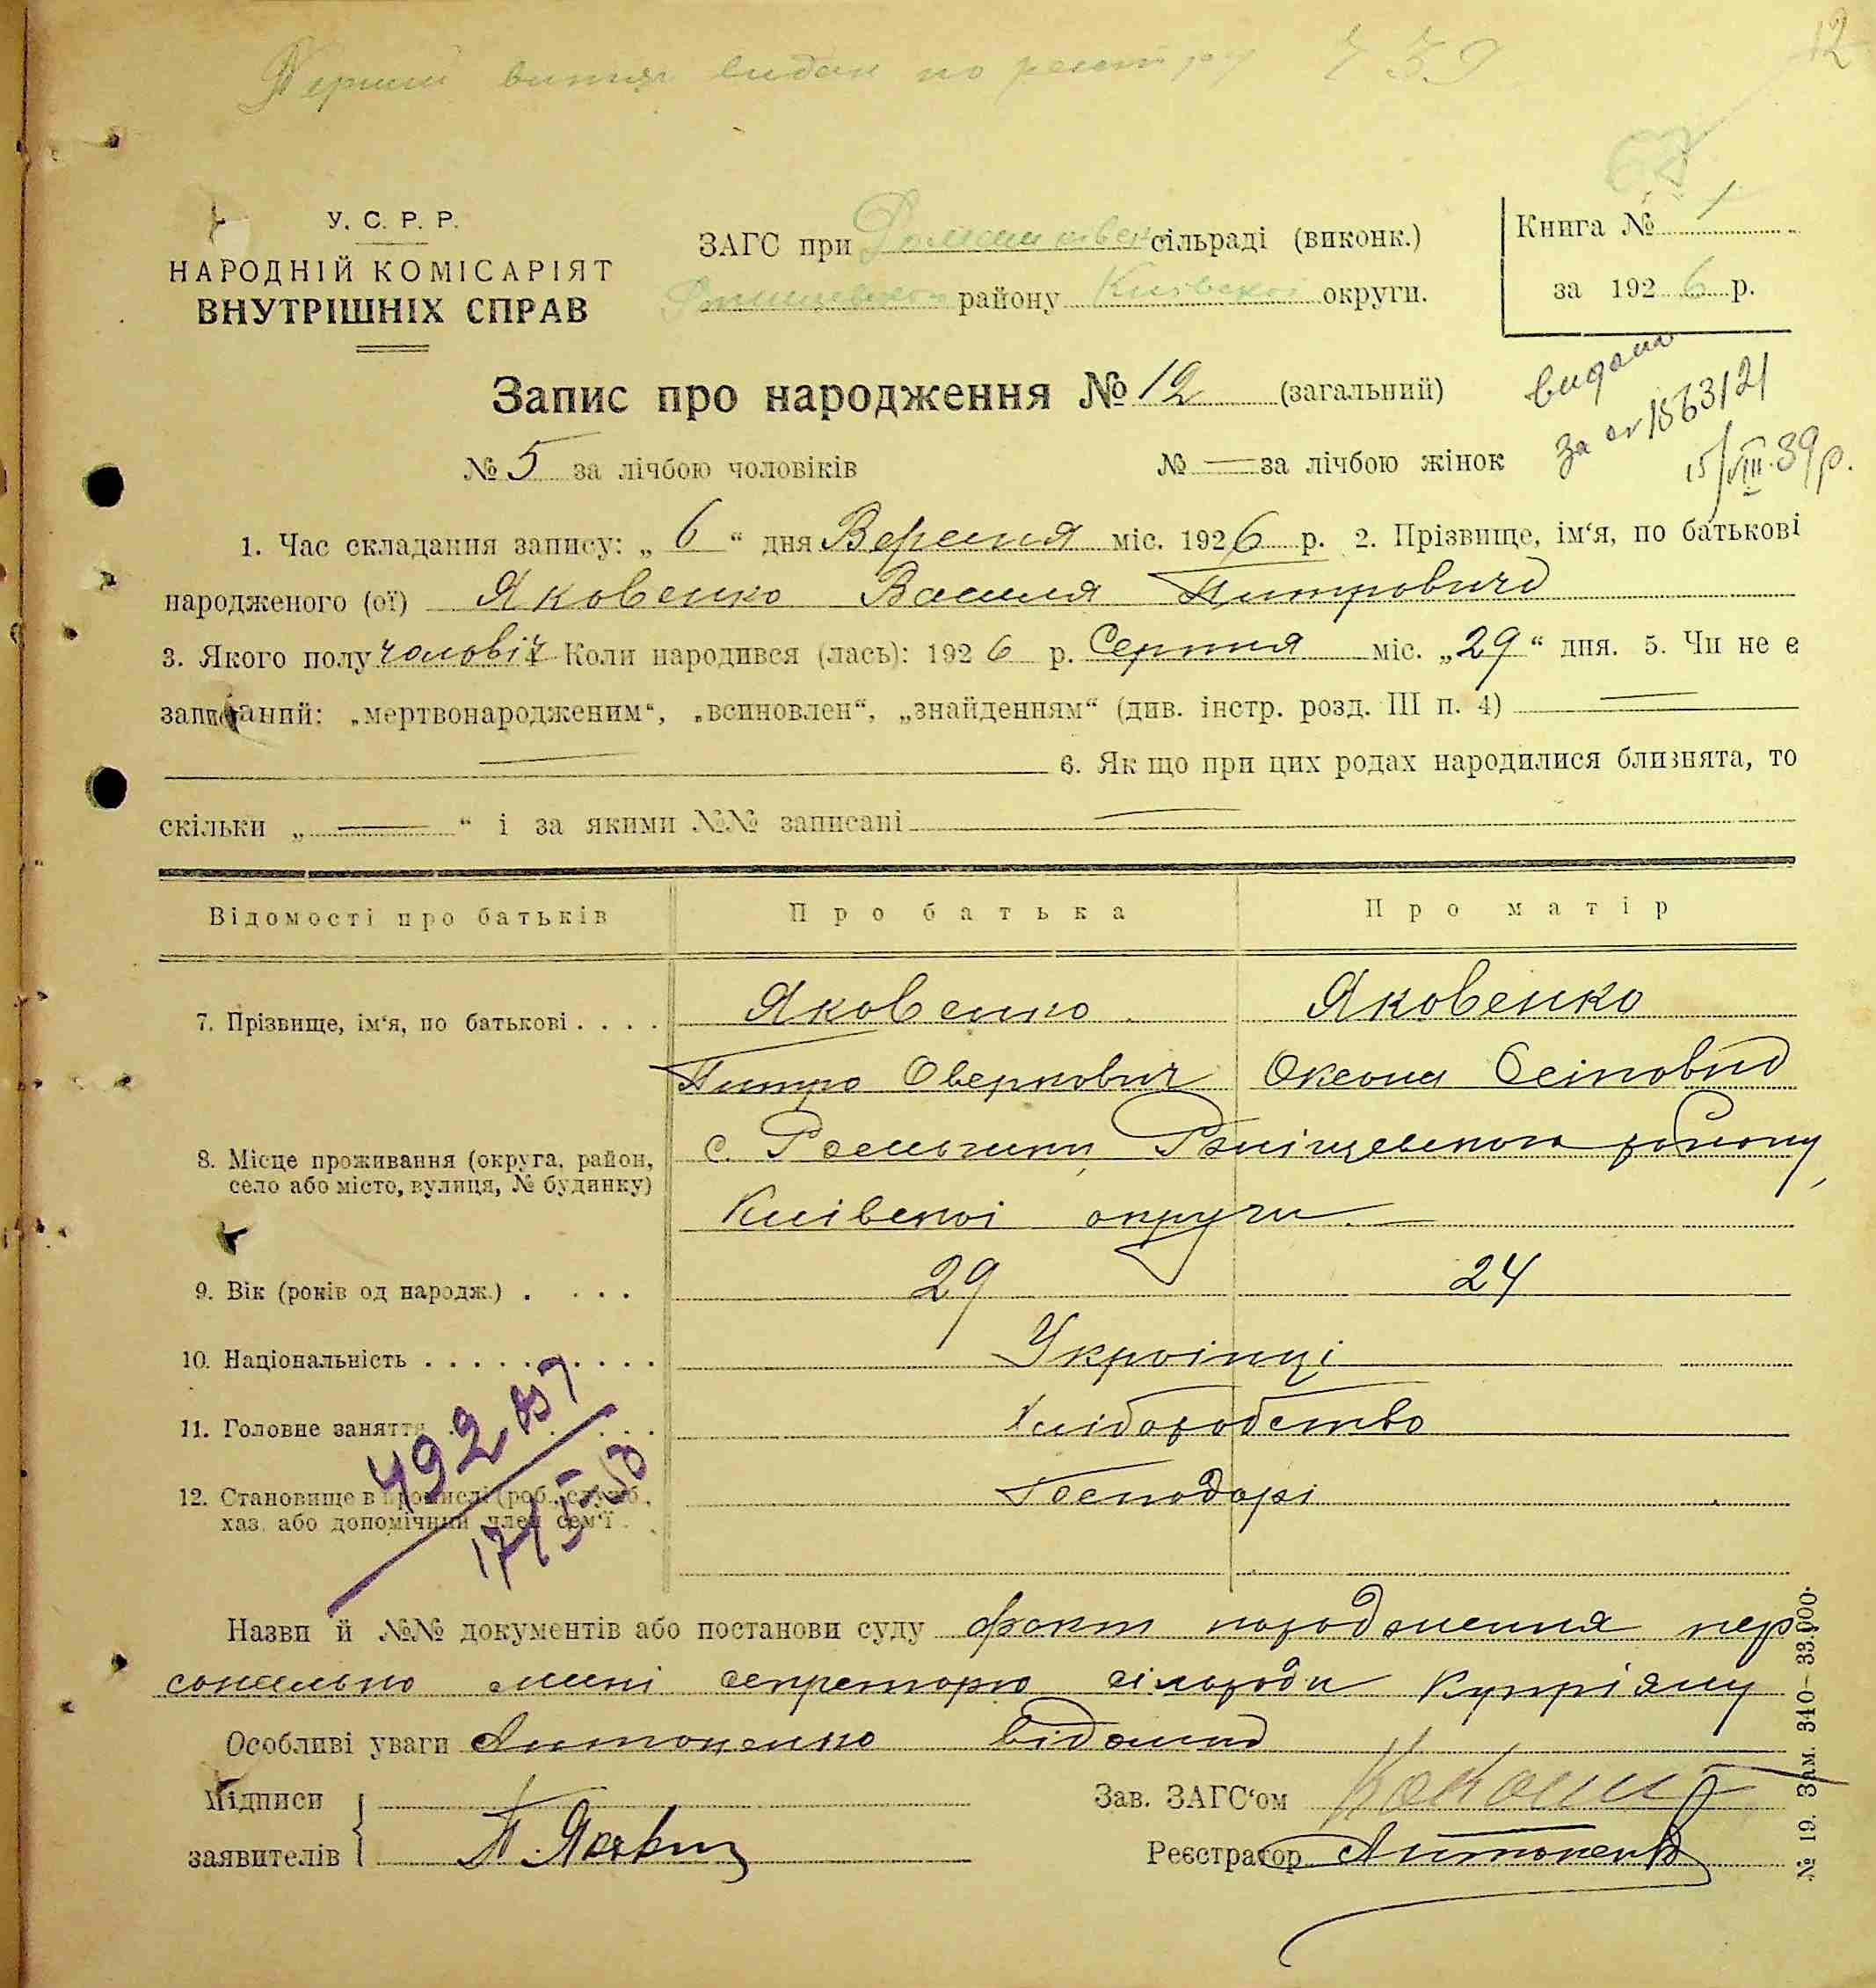 Перший витяг видан по реєстру 739
12
62
У. С. Р. Р.
НАРОДНІЙ КОМІСАРІЯТ
ВНУТРІШНІХ СПРАВ
ЗАГС при сільраді (виконк.)
району Київської округи.
Книга № 1
за 1926 р.
Запис про народження № 12 (загальний)
видано
за № 1563/21
15/VIII.39р.
№ 5 за лічбою чоловіків № — за лічбою жінок
1. Час складання запису: „ 6 “ дня Вересня міс. 1926 р. 2. Прізвище, ім‘я, по батькові
народженого (ої) Яковенко Василя Питровича
3. Якого полу чоловіч Коли народився (лась): 1926 р. Серпня міс. „29“ дня. 5. Чи не є
записаний: „мертвонародженим“, „всиновлен“, „знайденням“ (див. інстр. розд. III п. 4) —
— 6. Як що при цих родах народилися близнята, то
скільки „ — “ і за якими №№ записані —
Відомості про батьків Про батька Про матір
7. Прізвище, ім‘я, по батькові . . . . Яковенко Яковенко
Питро Оверкович Оксана Осіповна
8. Місце проживання (округа, район,
село або місто, вулиця, № будинку)
с. району,
Київської округи.
9. Вік (років од народж.) . . . . 29 24
10. Національність . . . . . . . . . . Украінці
11. Головне заняття . . . . . Хлібородство
492
12. Становище в промислі (роб., служб.,
хаз. або допомічний член сем‘ї .
Господарі
Назви й №№ документів або постанови суду факт народження пер
сонально мині секретарю сільради Купріяну
Особливі уваги Антоненко відомий
Підписи
заявителів
П. Яковен
Зав. ЗАГС‘ом
Реєстратор Антоненко
№ 19. Зам. 340—33.000.